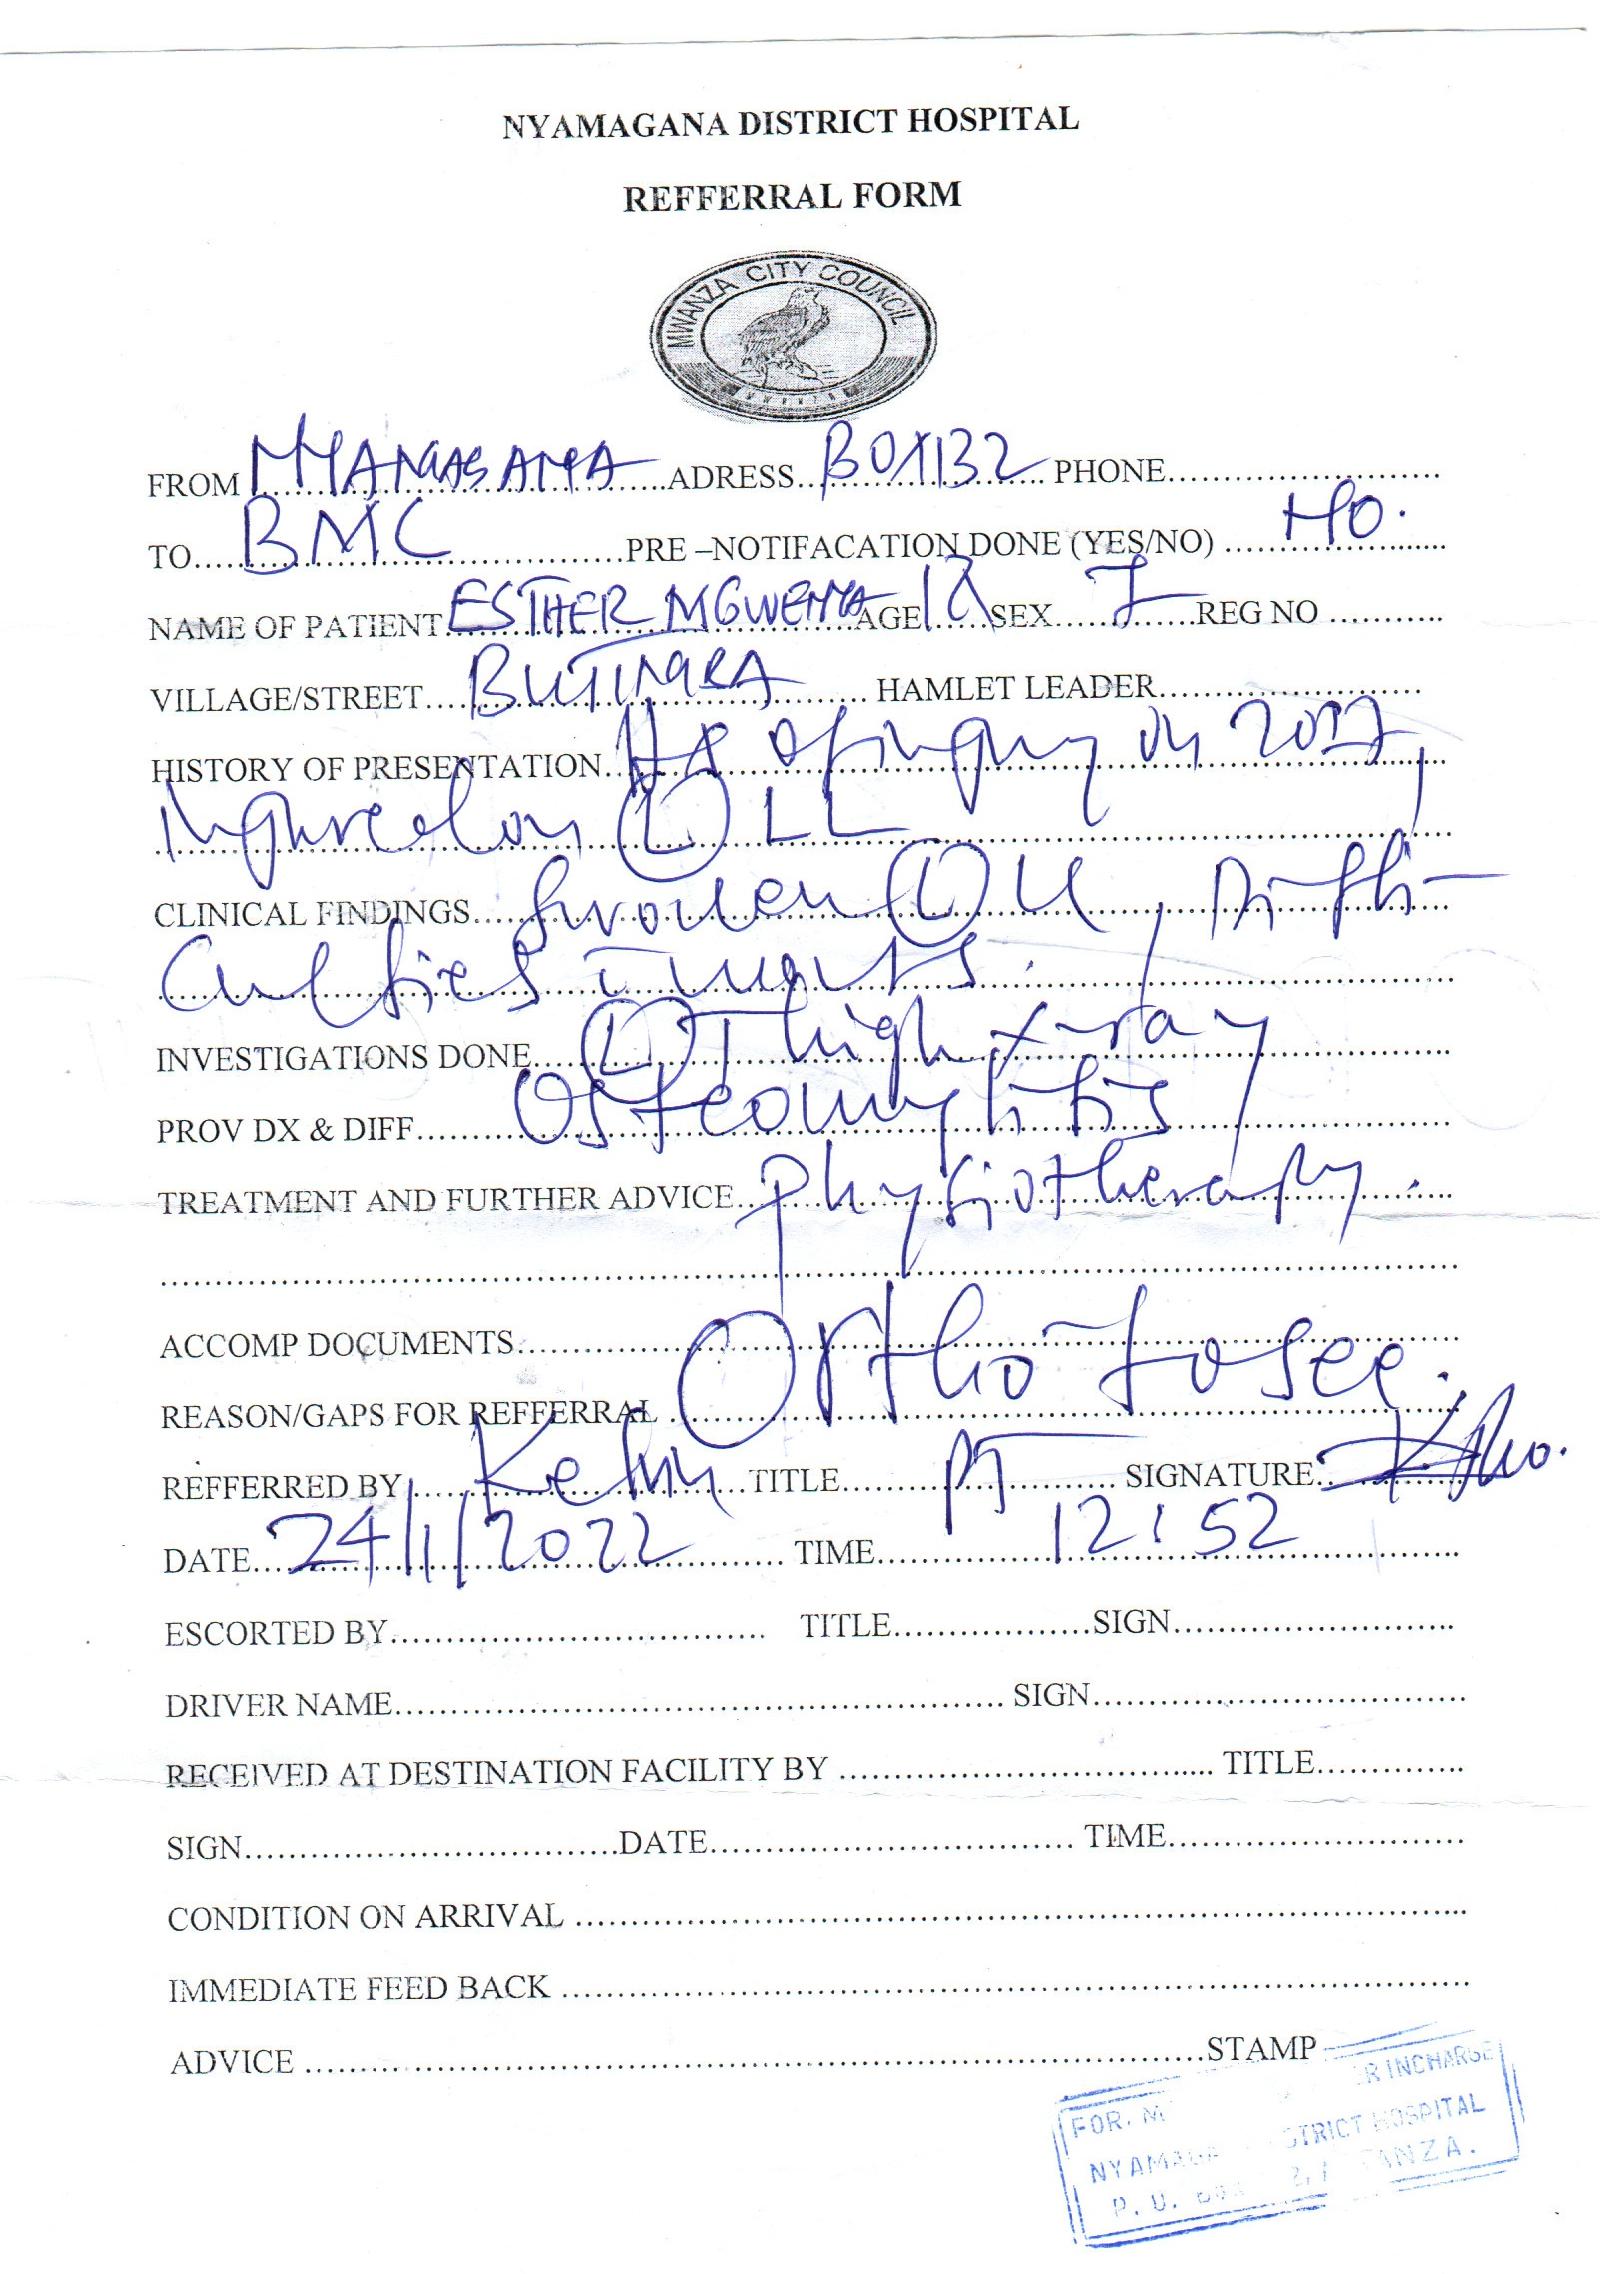 NYAMAGANA DISTRICT HOSPITAL
REFFERRAL FORM
MWANZA CITY COUNCIL
MWANZA
FROM NYAMAGANA ADRESS BOX 132 PHONE
TO BMC PRE –NOTIFACATION DONE (YES/NO) NO.
NAME OF PATIENT ESTHER AGE SEX F REG NO
VILLAGE/STREET BUTIMBA HAMLET LEADER
HISTORY OF PRESENTATION Hx of injury on 2017,
(L) LL
CLINICAL FINDINGS Swollen (L) LL, Diffi-
culties
INVESTIGATIONS DONE (L) Thigh X-ray
PROV DX & DIFF Osteomylitis
TREATMENT AND FURTHER ADVICE physiotherapy.
ACCOMP DOCUMENTS
REASON/GAPS FOR REFFERRAL Ortho to see.
REFFERRED BY Kelvin TITLE SIGNATURE
DATE 24/1/2022 TIME 12:52
ESCORTED BY TITLE SIGN
DRIVER NAME SIGN
RECEIVED AT DESTINATION FACILITY BY TITLE
SIGN DATE TIME
CONDITION ON ARRIVAL
IMMEDIATE FEED BACK
ADVICE STAMP
FOR. M R INCHARGE
NYAMAGA STRICT HOSPITAL
P. O. BOX 2, ANZA.